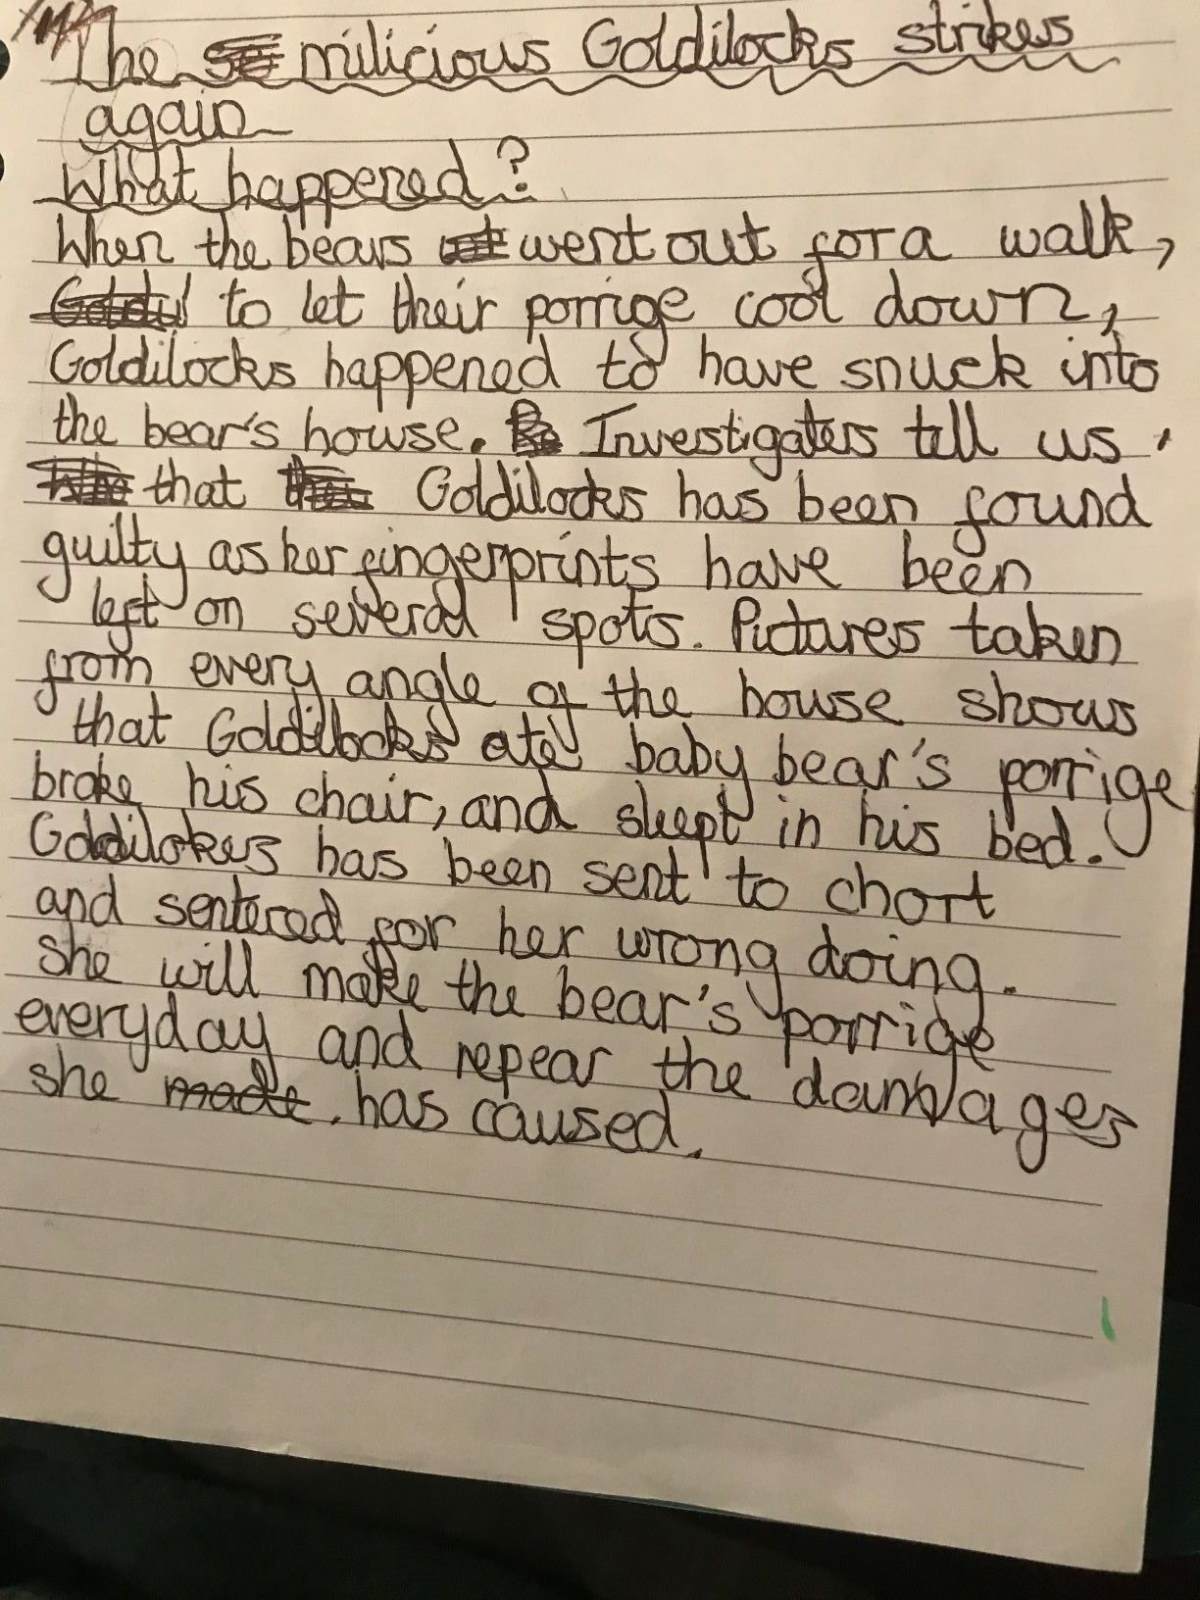 The milicious Goldilocks strikes
again
What happened?
When the bears went out for a walk,
to let their porrige cool down,
Goldilocks happened to have snuck into
the bear's house. Investigaters tell us
that Goldilocks has been found
guilty as her fingerprints have been
left on several spots. Pictures taken
from every angle of the house shows
that Goldilocks ate baby bear's porrige
broke his chair, and slept in his bed.
Goldilokes has been sent to chort
and sentered for her wrong doing.
she will make the bear's porrige
everyday and repear the damages
she made has caused.